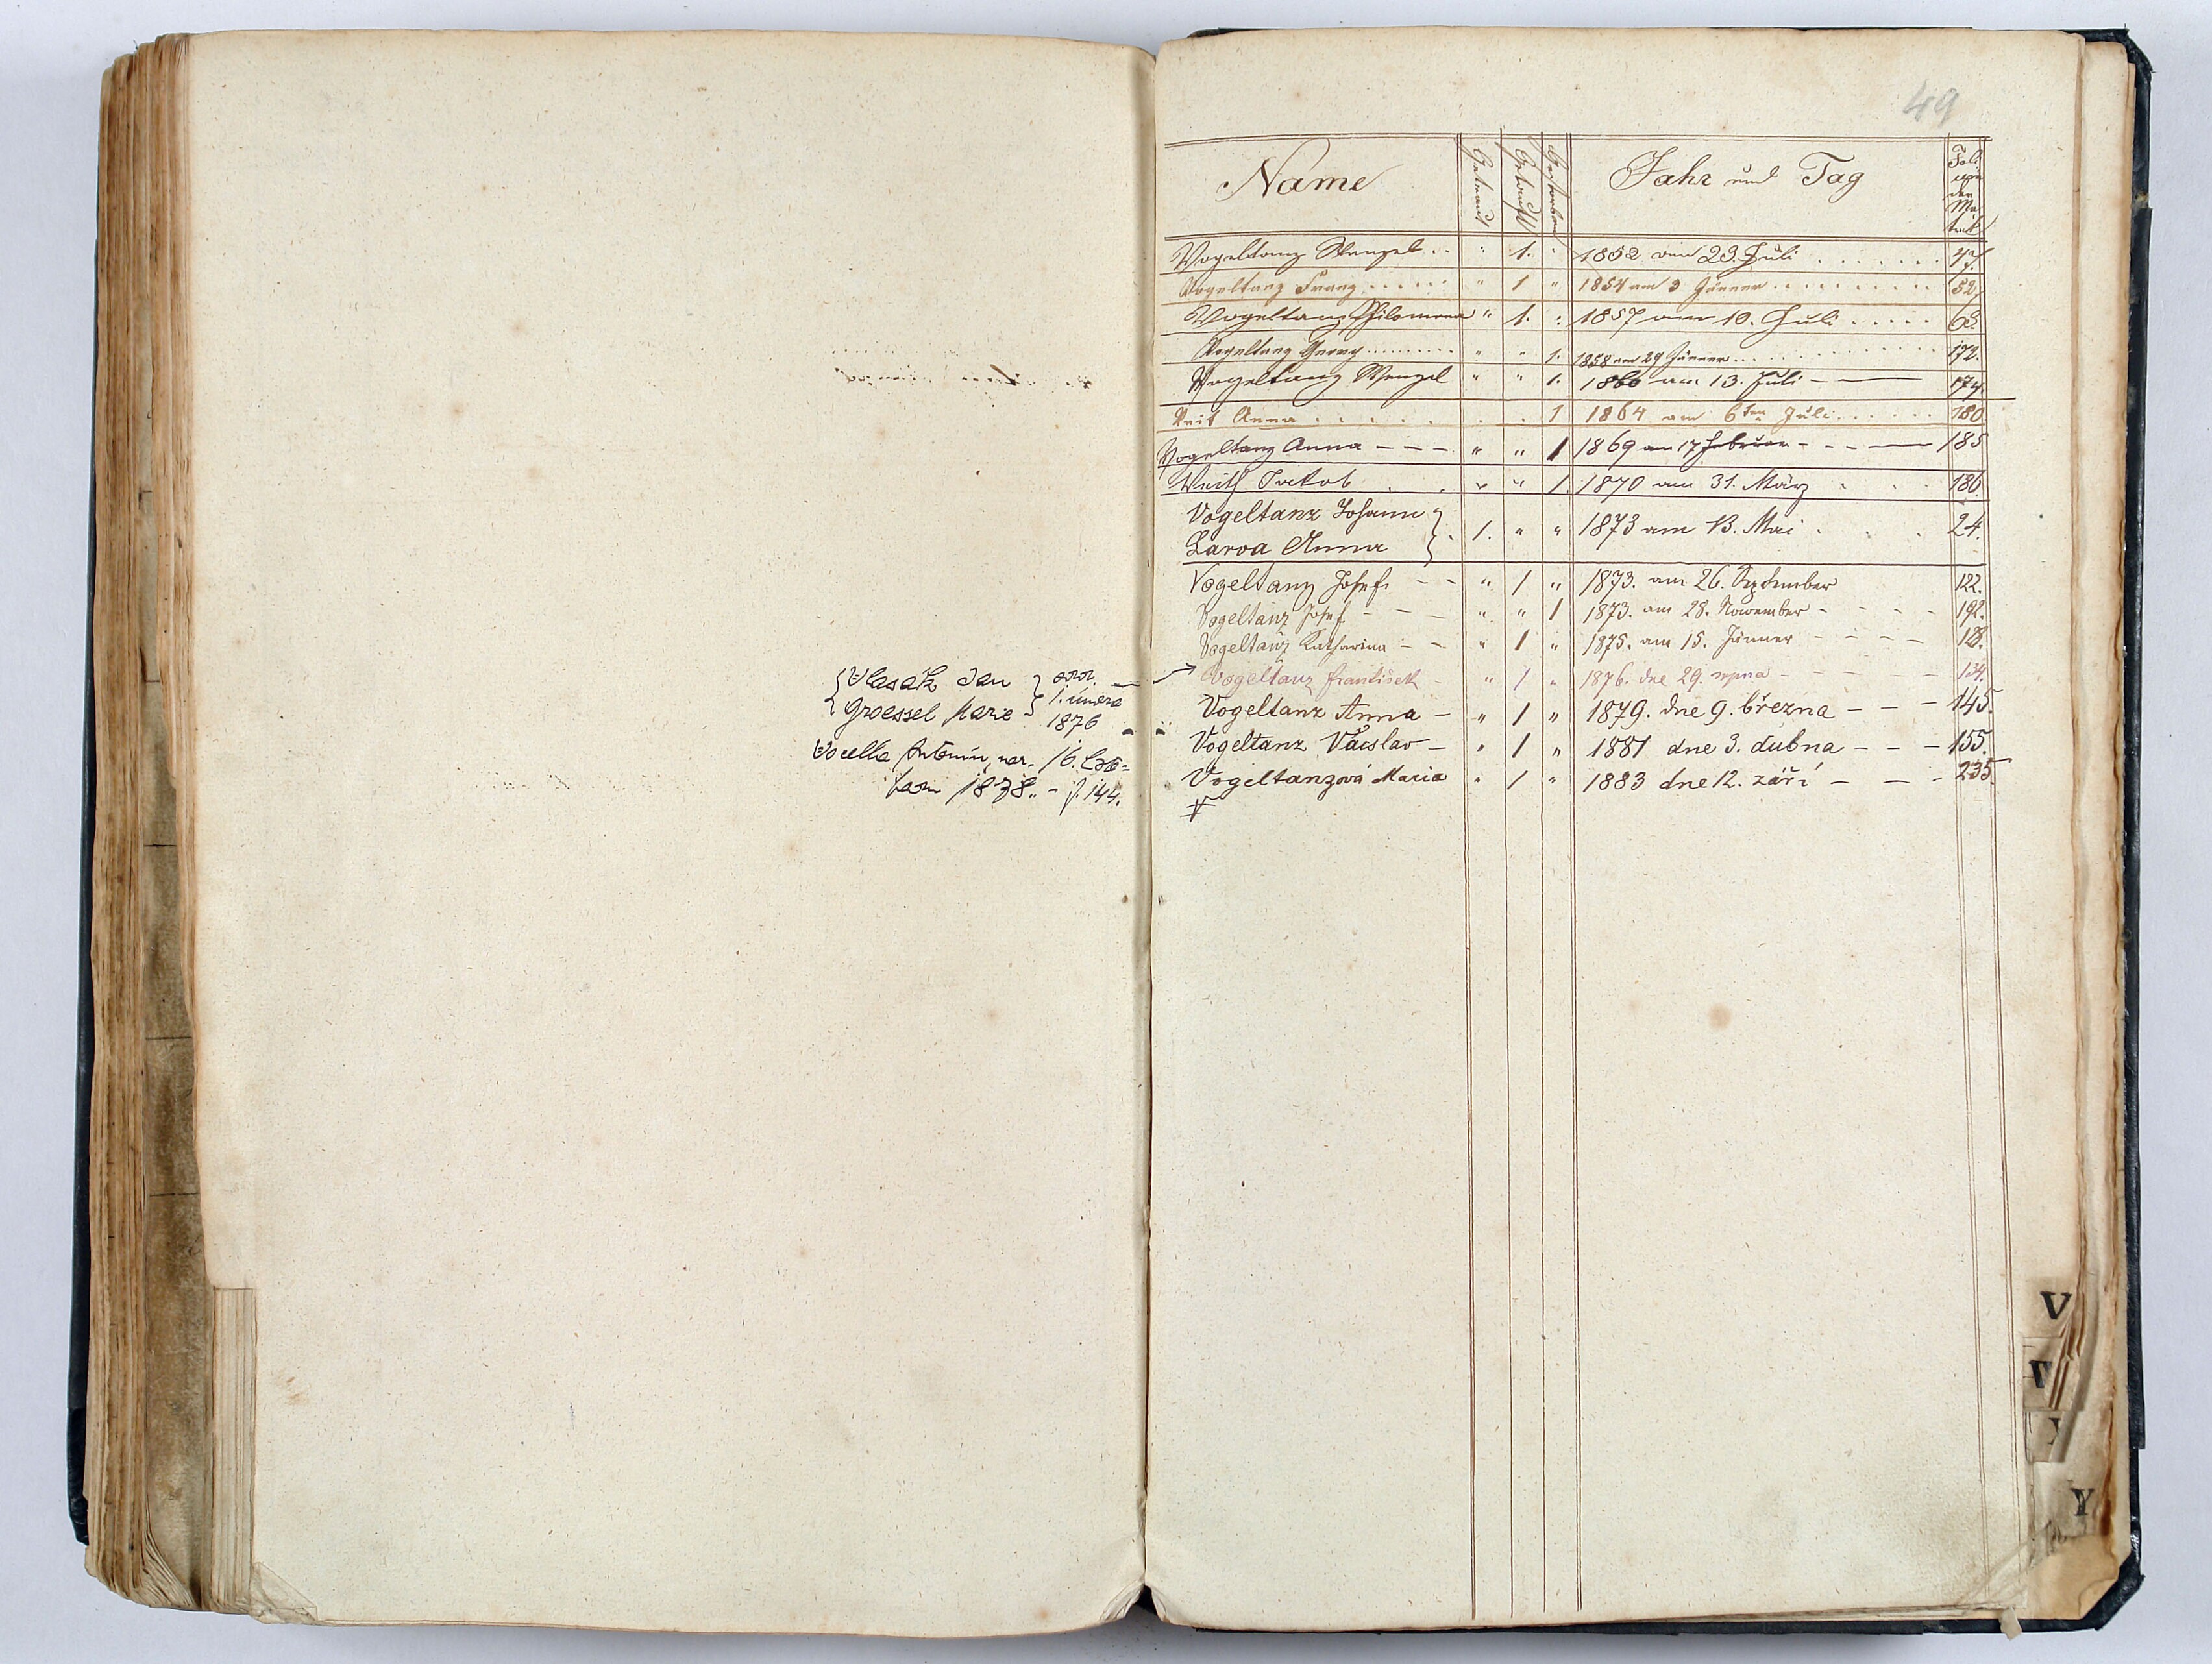 {Vlasák Jan } odd.
{Groessel Marie } 1. února
1876
Vocelka Antonín, nar. 16. Lis=
1878. - f. 144.
49
Name
Getraut
Getauft
Gestorben
Jahr und Tag
Foli
von
der
Ma
trik
Vogeltanz Wenzel . . " 1. " 1852 am 23. Juli . . . . . . 47.
Vogeltanz Franz . . . . . . " 1 " 1854 am 3 Jänner . . . . . . . . . 52.
Vogeltanz Philomena " 1. : 1857 am 10. Juli . . . . . 63.
Vogeltanz Georg . . . . . . . . . " " 1. 1858 am 29 Jänner . . . . . . . . . . . . 172.
Vogeltanz Wenzel " " 1. 1860 am 13. Juli - — 174.
Veit Anna . . . . . . . . 1 1864 am 6ten Juli . . . . . 180
Vogeltanz Anna - - - - " " 1 1869 am 17 Februar - - - — 185
Weith Jakob . . " " 1. 1870 am 31. März . . . 186.
Vogeltanz Johann }
Larva Anna } . 1. " " 1873 am 13. Mai . . . 24.
Vogeltanz Josef. - - " 1 " 1873. am 26. September 122.
Vogeltanz Josef - - - " " 1 1873. am 28. November - - - - 192.
Vogeltanz Katharina - - " 1 " 1875. am 15. Jänner - - - - 128.
Vogeltanz František - " 1 " 1876. dne 29. srpna - - - - - 134.
Vogeltanz Anna - " 1 " 1879. dne 9. března - - - 145.
Vogeltanz Václav - " 1 " 1881 dne 3. dubna - - - 155.
Vogeltanzová Maria " 1 " 1883 dne 12. září - - - 235.
V
Y